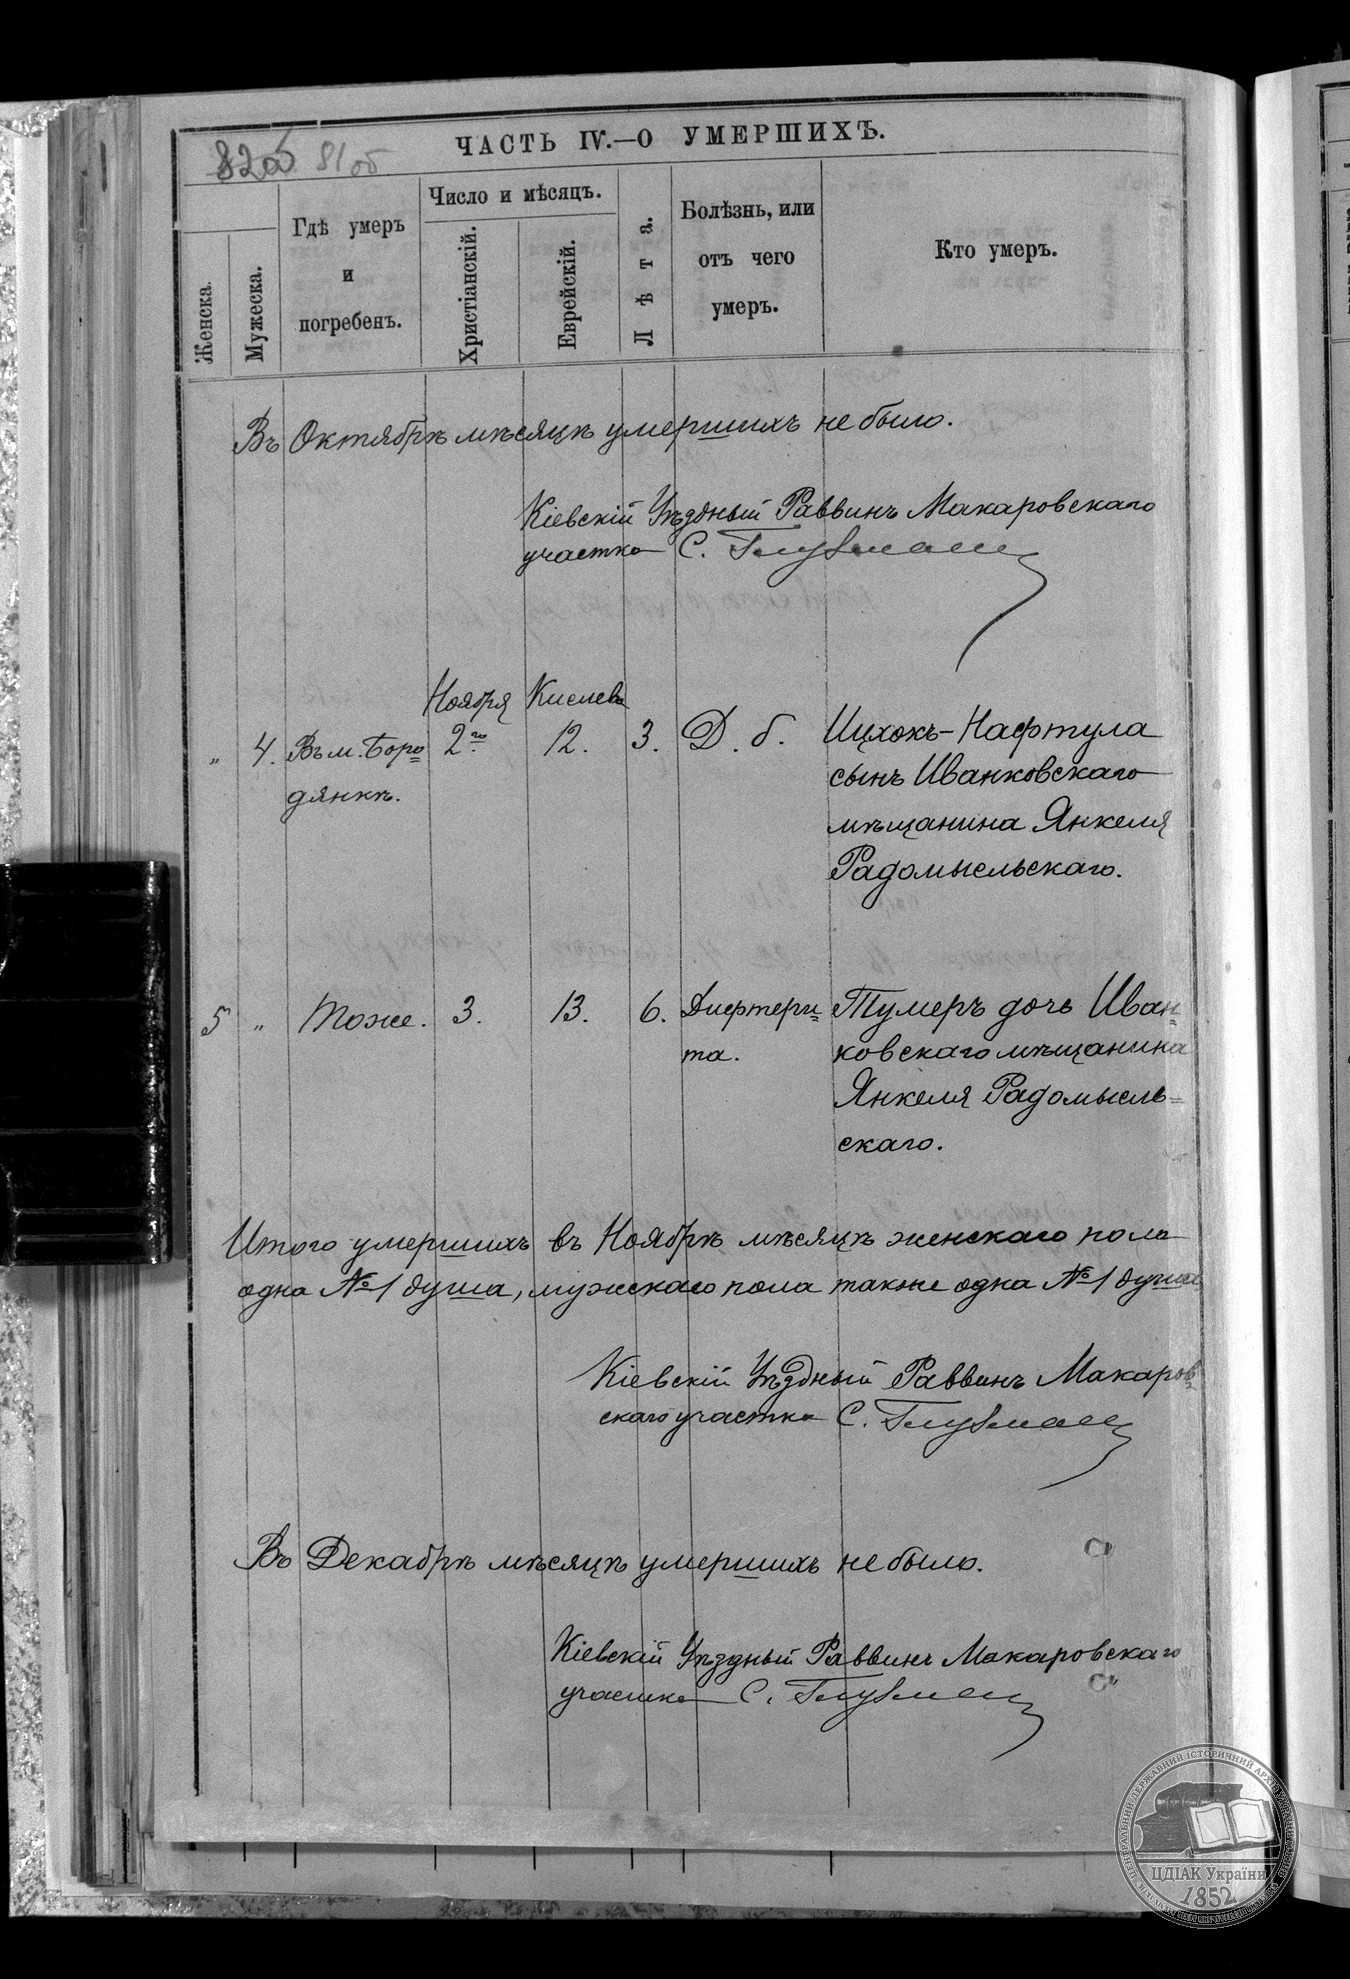 ЧАСТЬ IV.—О УМЕРШИХЪ.
82об 81об
Женска.
Мужеска.
Гдѣ умеръ
и
погребенъ.
Число и мѣсяцъ.
Христіанскій.
Еврейскій.
Лѣта.
Болѣзнь, или
отъ чего
умеръ.
Кто умеръ.
Въ Октябрѣ мѣсяцѣ умершихъ не было.
Кіевскій Уѣздный Раввинъ Макаровскаго
участка С. Глузманъ
Ноября Кислева
„ 4. Въ м. Боро= 2го 12. 3. Д. б. Ицхокъ-Нафтула
дянкѣ. сынъ Иванковскаго
мѣщанина Янкеля
Радомысльскаго.
5 „ Тоже. 3. 13. 6. Дифтери= Тумеръ дочь Иван=
та. ковскаго мѣщанина
Янкеля Радомысль=
скаго.
Итого умершихъ въ Ноябрѣ мѣсяцѣ женскаго пола
одна № 1 душа, мужскаго пола также одна № 1 душа
Кіевскій Уѣздный Раввинъ Макаров=
скаго участка С. Глузманъ
Въ Декабрѣ мѣсяцѣ умершихъ не было.
Кіевскій Уѣздный Раввинъ Макаровскаго
участка С. Глузманъ
ЦЕНТРАЛЬНИЙ ДЕРЖАВНИЙ ІСТОРИЧНИЙ АРХІВ УКРАЇНИ
ЦДІАК України
1852